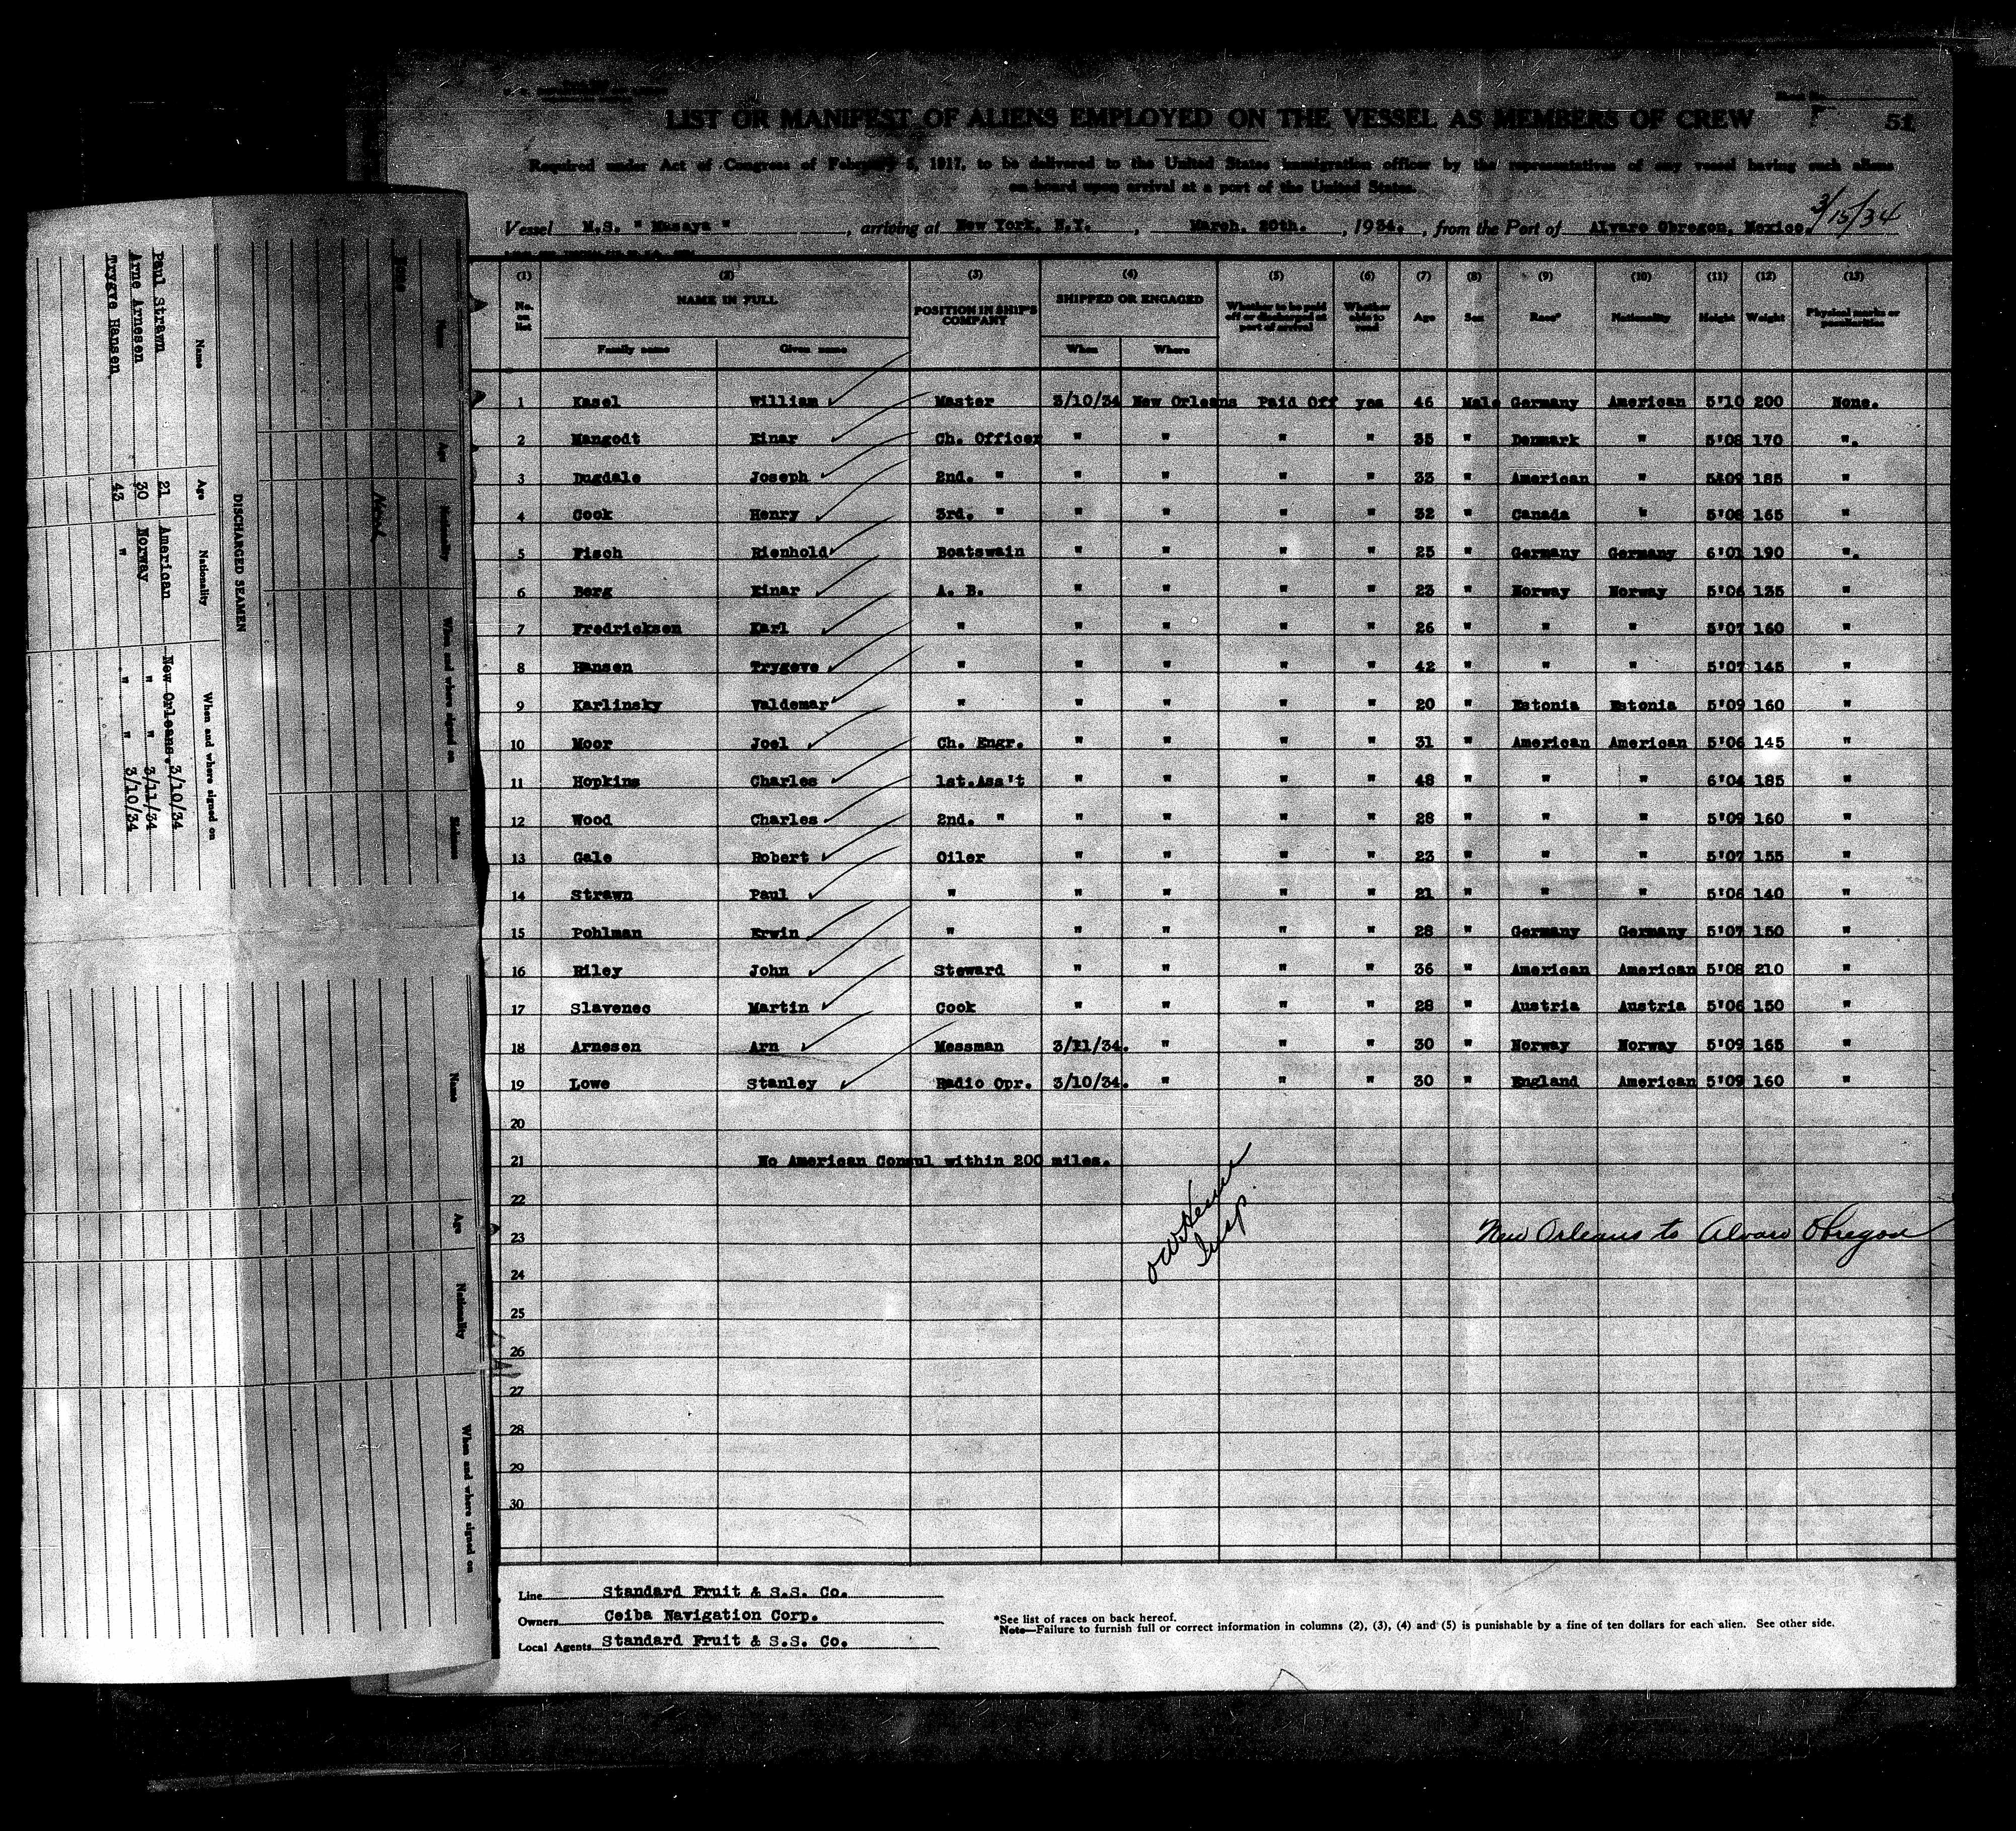 LIST OR MANIFEST OF ALIENS EMPLOYED ON THE VESSEL AS MEMBERS OF CREW
51
Required under Act of Congress of February 5, 1917, to be delivered to the United States immigration officer by the representatives of any vessel having such aliens
on board upon arrival at a port of the United States.
3/15/34
Vessel M.S. " Masaya ", arriving at New York, N.Y. , March. 20th. , 1934. , from the Port of Alvaro Obregon, Mexico.
(1) (2) (3) (4) (5) (6) (7) (8) (9) (10) (11) (12) (13)
No. on list NAME IN FULL POSITION IN SHIP'S COMPANY SHIPPED OR ENGAGED Whether to be paid off or discharged at port of arrival Whether able to read Age Sex Race* Nationality Height Weight Physical marks or peculiarities
Family name Given name When Where
1 Kasel William Master 3/10/34 New Orleans Paid Off yes 46 Male Germany American 5'10 200 None.
2 Mangodt Einar Ch. Officer " " " " 35 " Denmark " 5'08 170 ".
3 Dugdale Joseph 2nd. " " " " " 33 " American " 5'09 185 "
4 Cook Henry 3rd. " " " " " 32 " Canada " 5'08 165 "
5 Fisch Rienhold Boatswain " " " " 25 " Germany Germany 6'01 190 ".
6 Berg Einar A. B. " " " " 23 " Norway Norway 5'06 135 "
7 Fredricksen Karl " " " " " 26 " " " 5'07 160 "
8 Hansen Trygeve " " " " " 42 " " " 5'07 145 "
9 Karlinsky Valdemar " " " " " 20 " Estonia Estonia 5'09 160 "
10 Moor Joel Ch. Engr. " " " " 31 " American American 5'06 145 "
11 Hopkins Charles 1st.Ass't " " " " 48 " " " 6'04 185 "
12 Wood Charles 2nd. " " " " " 28 " " " 5'09 160 "
13 Gale Robert Oiler " " " " 23 " " " 5'07 155 "
14 Strawn Paul " " " " " 21 " " " 5'06 140 "
15 Pohlman Erwin " " " " " 28 " Germany Germany 5'07 150 "
16 Riley John Steward " " " " 36 " American American 5'08 210 "
17 Slavenec Martin Cook " " " " 28 " Austria Austria 5'06 150 "
18 Arnesen Arn Messman 3/11/34. " " " 30 " Norway Norway 5'09 165 "
19 Lowe Stanley Radio Opr. 3/10/34. " " " 30 " England American 5'09 160 "
20
21 No American Consul within 200 miles.
22
23 New Orleans to Alvaro Obregon
Insp
24
25
26
27
28
29
30
Line Standard Fruit & S.S. Co.
Owners Ceiba Navigation Corp.
Local Agents Standard Fruit & S.S. Co.
*See list of races on back hereof.
Note—Failure to furnish full or correct information in columns (2), (3), (4) and (5) is punishable by a fine of ten dollars for each alien. See other side.
Name Age Nationality When and where signed on
None
DISCHARGED SEAMEN
Name Age Nationality When and where signed on
Paul Strawn 21 American New Orleans. 3/10/34
Arne Arnesen 30 Norway " " 3/11/34
Trygve Hansen 43 " " " 3/10/34
Name Age Nationality When and where signed on